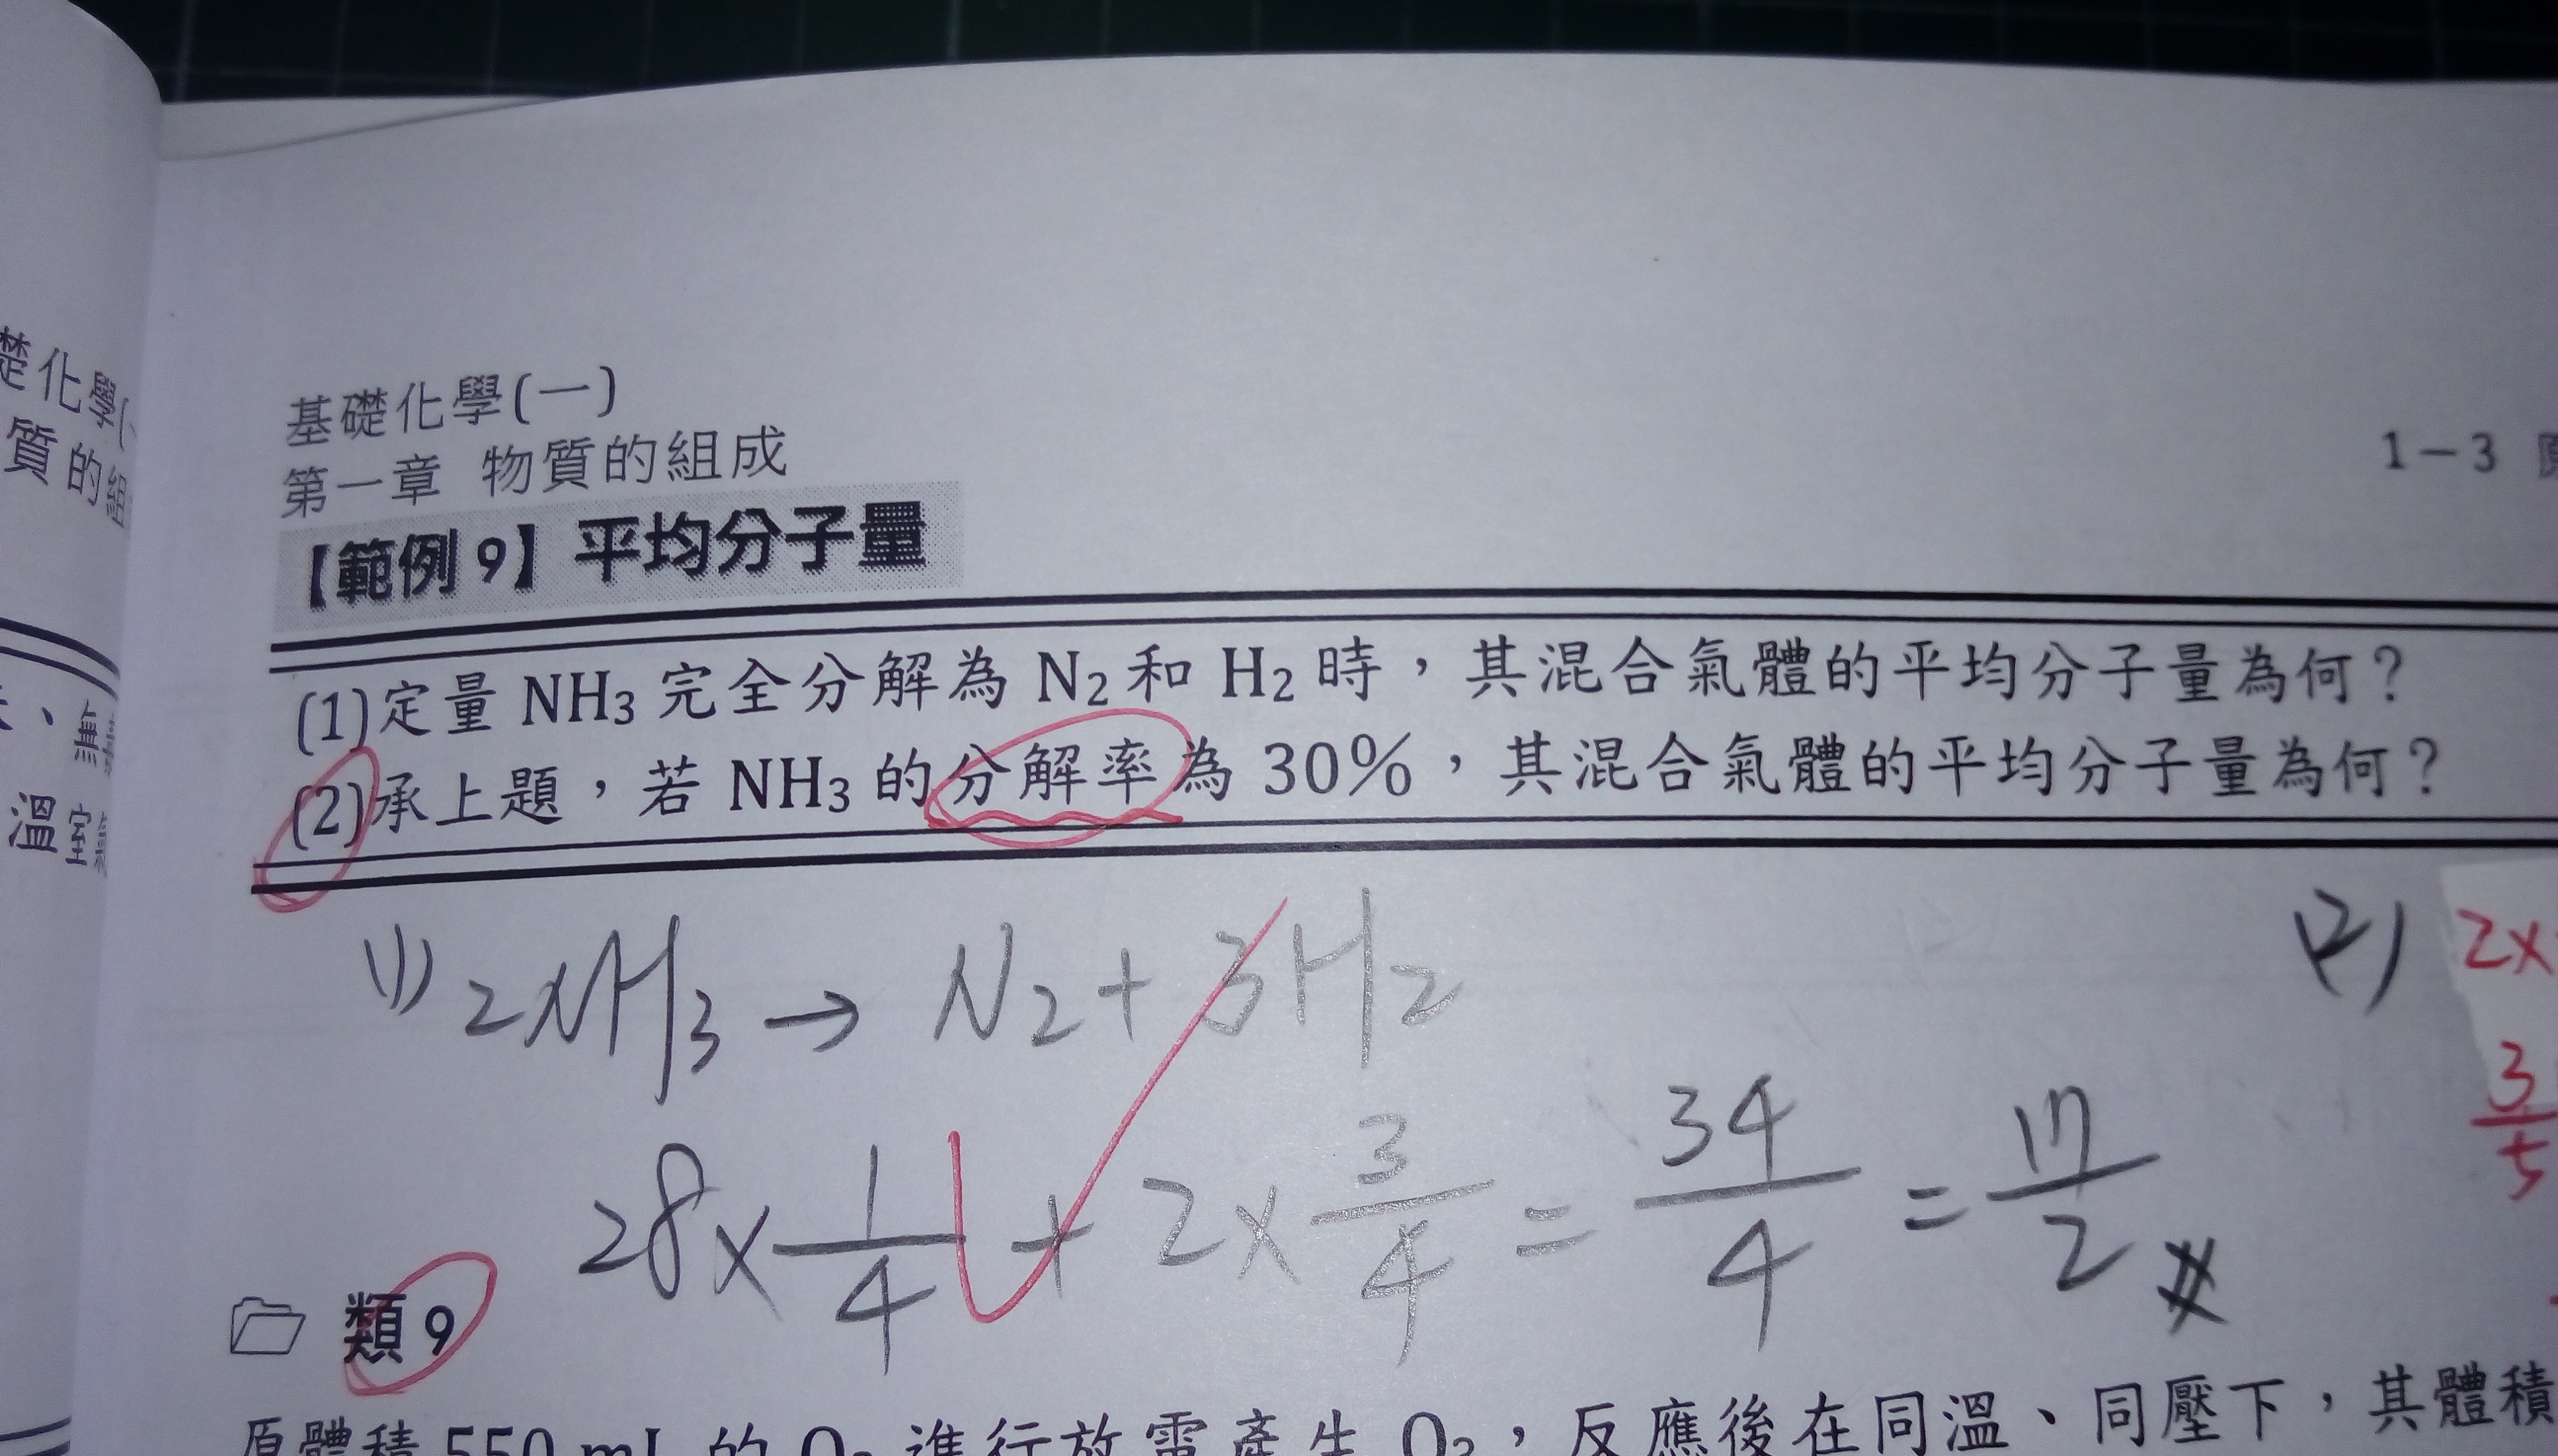 礎化學(
質的組
、無
溫室氣
基礎化學(一)
第一章 物質的組成
1-3
【範例 9】平均分子量
(1)定量 NH3 完全分解為 N2 和 H2 時，其混合氣體的平均分子量為何？
(2)承上題，若 NH3 的分解率為 30%，其混合氣體的平均分子量為何？
(1) 2NH3 → N2 + 3H2
28 × 1/4 + 2 × 3/4 = 34/4 = 17/2 #
(2)
2×
3/5
類 9
原體積 550 mL 的 O2 進行放電產生 O3，反應後在同溫、同壓下，其體積